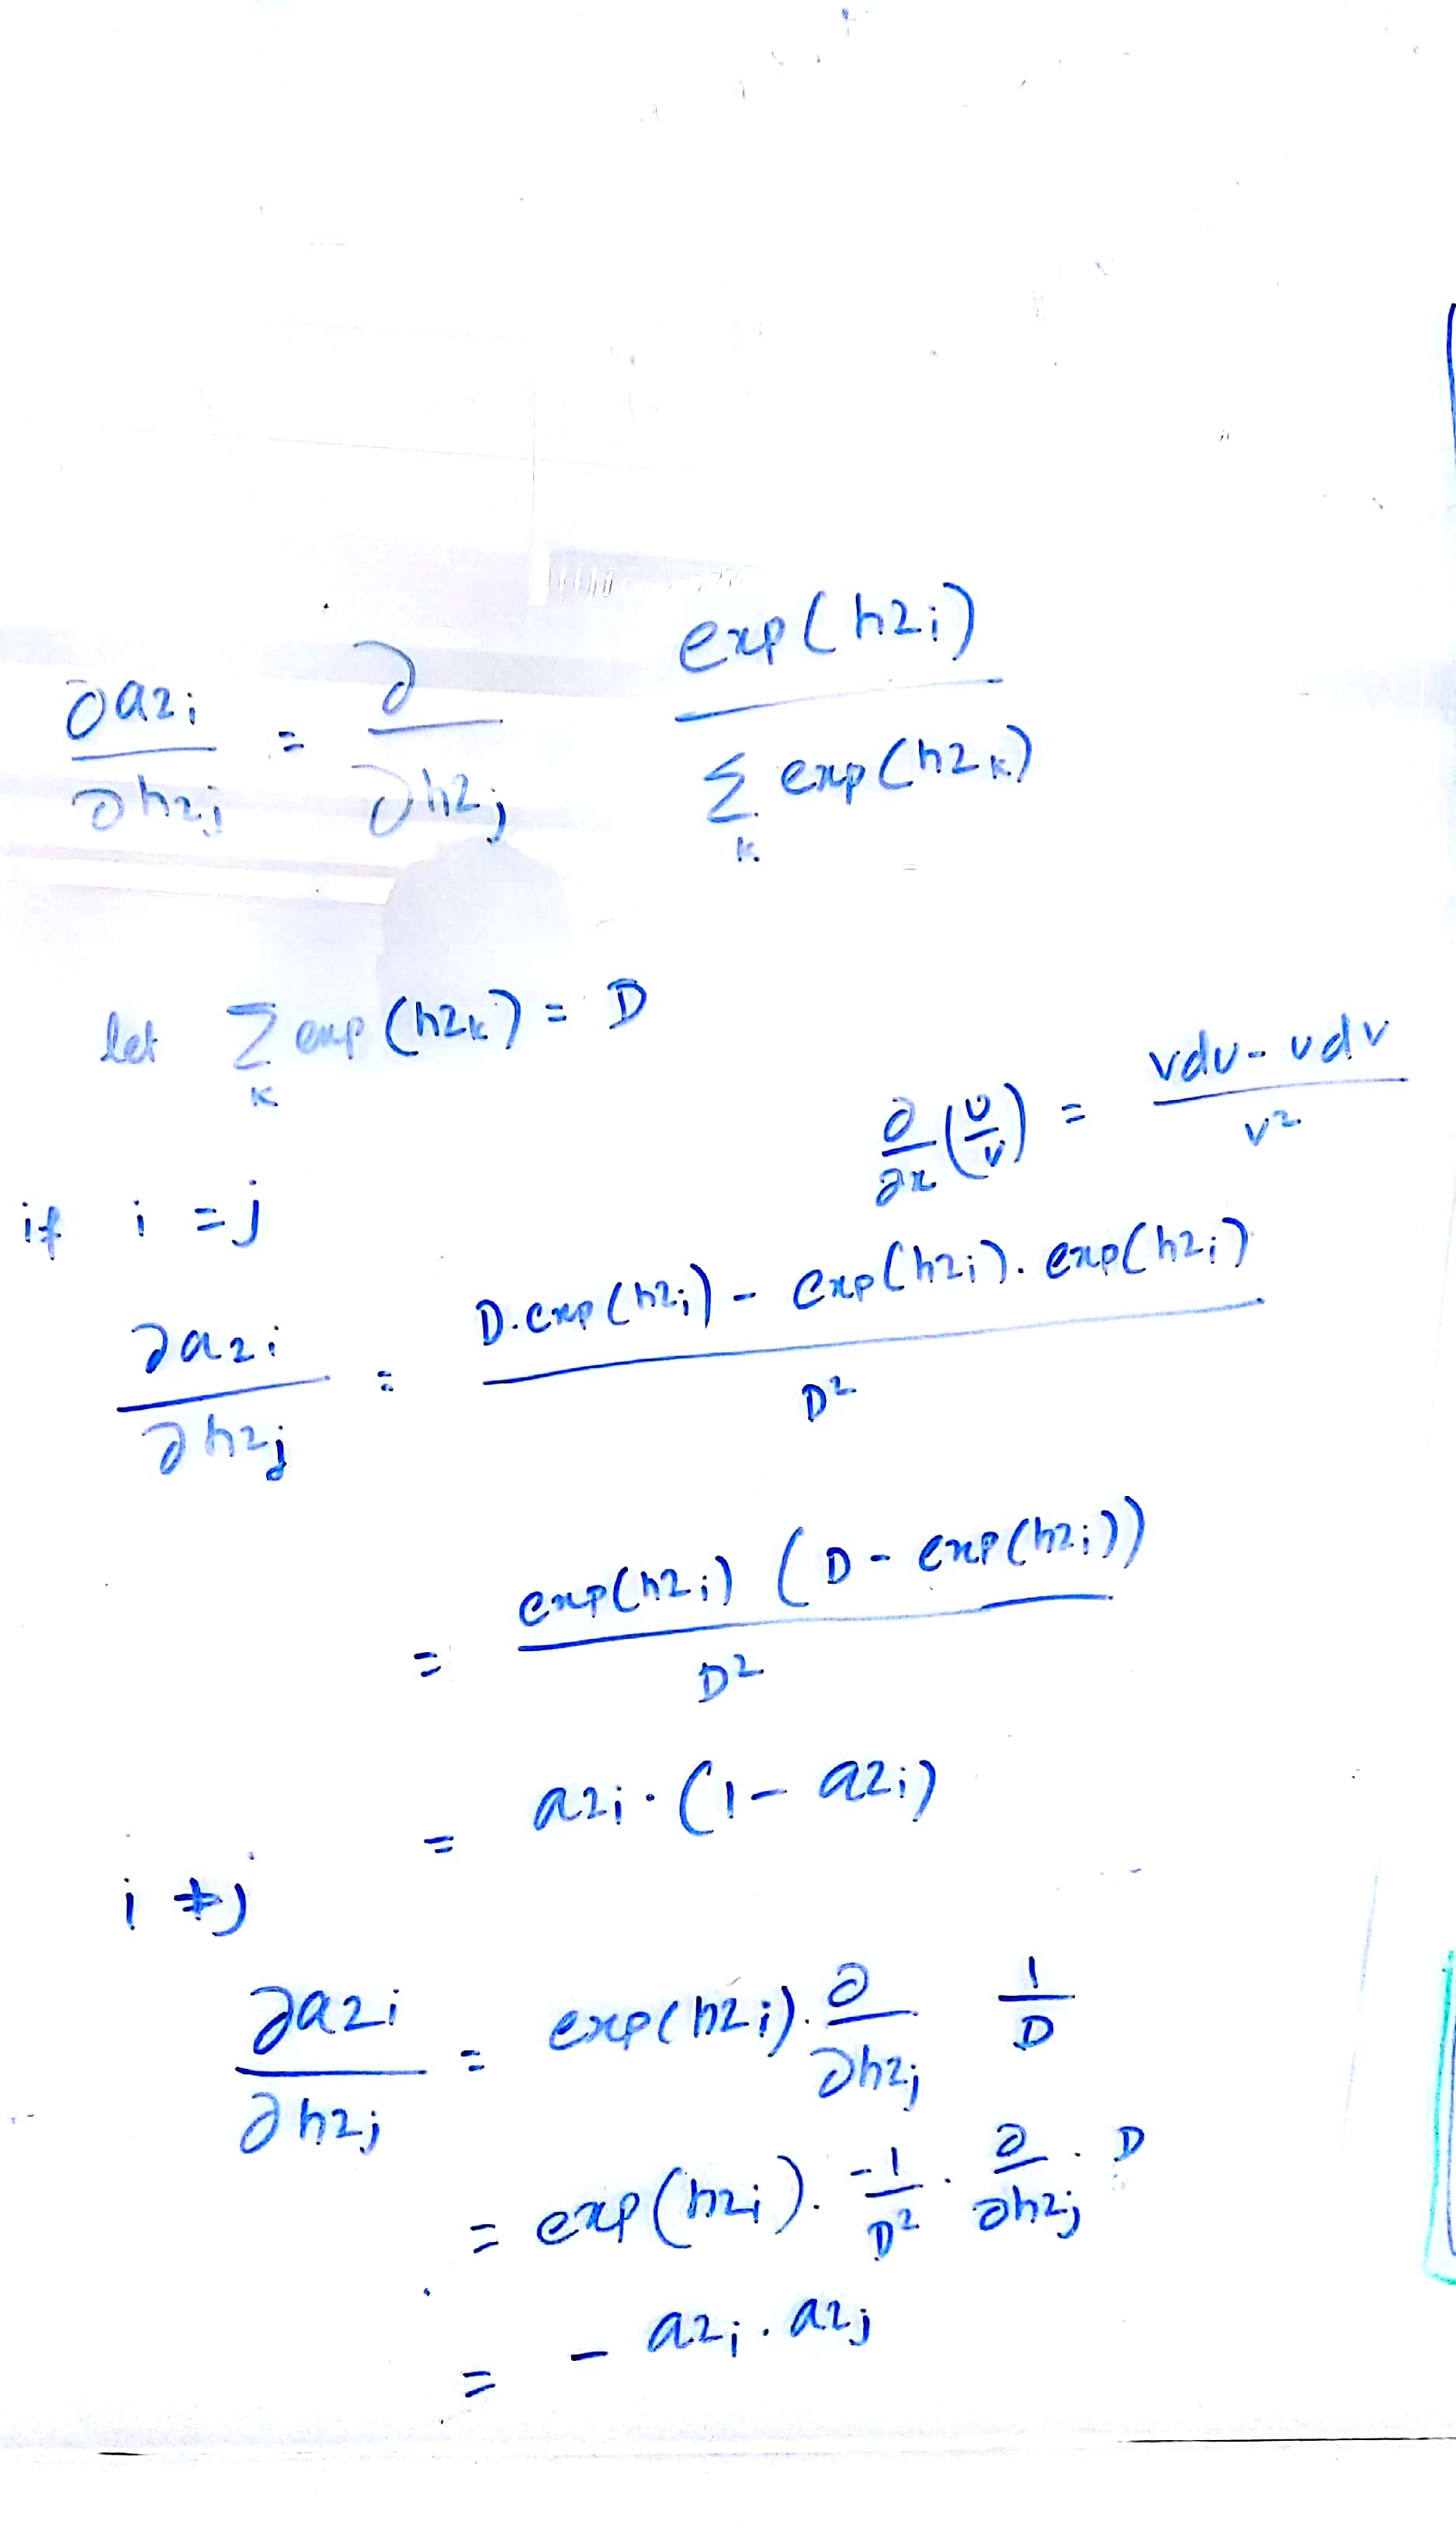 ∂a2i / ∂h2j = ∂ / ∂h2j exp(h2i) / Σ_k exp(h2k)
let Σ_k exp(h2k) = D
∂/∂x (u/v) = vdu - udv / v²
if i = j
∂a2i / ∂h2j = D.exp(h2i) - exp(h2i).exp(h2i) / D²
= exp(h2i) (D - exp(h2i)) / D²
= a2i . (1 - a2i)
i ≠ j
∂a2i / ∂h2j = exp(h2i). ∂ / ∂h2j 1/D
= exp(h2i). -1/D² . ∂ / ∂h2j . D
= - a2i . a2j